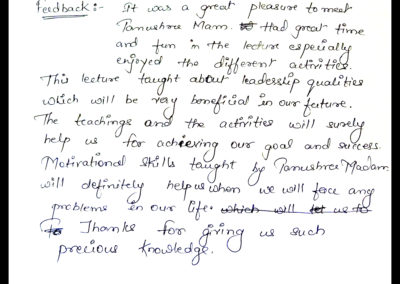 Feedback:- It was a great pleasure to meet
Tanushree Mam. Had great time
and fun in the lecture especially
enjoyed the different activities.
This lecture taught about leadership qualities
which will be very beneficial in our future.
The teachings and the activities will surely
help us for achieving our goal and success.
Motivational skills taught by Tanushree Madam
will definitely help us when we will face any
problems in our life. which will let us to
Thanks for giving us such
precious knowledge.